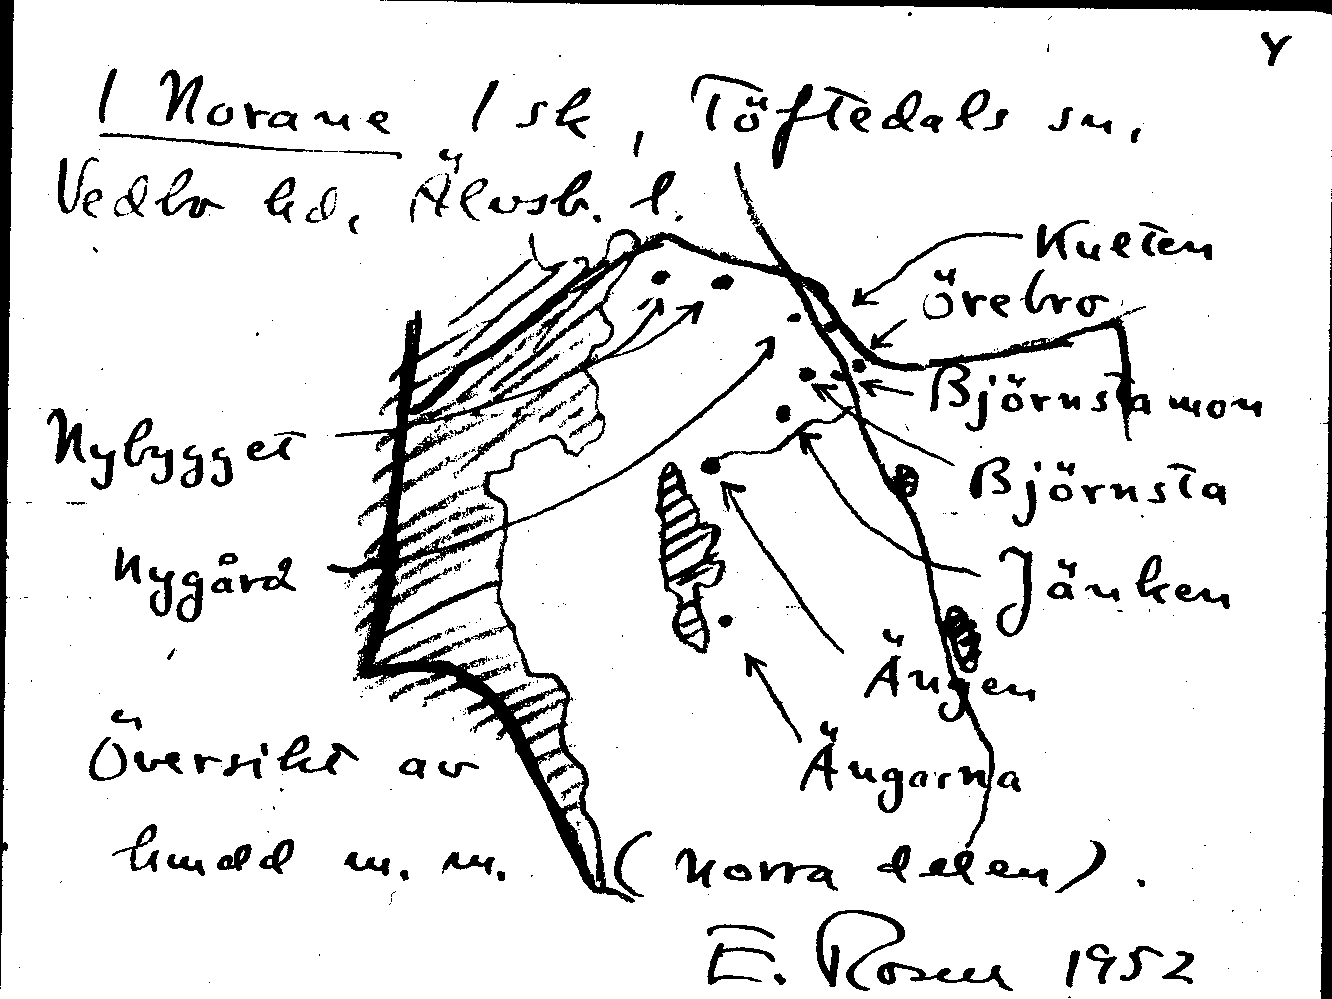 Y
1 Norane 1 sk, Töftedals sn,
Vedbo hd, Älvsb. l.
Kulten
Örebro
Björnstamon
Nybygget
Björnsta
Nygård
Jänken
Ängen
Ängarna
Översikt av
hmdd m. m. (norra delen).
E. Rosell 1952